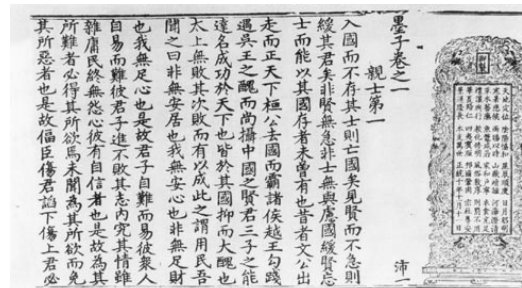 天地定位 陰陽協和 星辰順度 日月昭明
墨子卷之一
沛一
親士第一
入國而不存其士則亡國矣見賢而不急則
緩其君矣非賢無急非士無與慮國緩賢忘
士而能以其國存者未曾有也昔者文公出
走而正天下桓公去國而霸諸侯越王句踐
遇吳王之醜而尚攝中國之賢君三子之能
達名成功於天下也皆於其國抑而大醜也
太上無敗其次敗而有以成此之謂用民吾
聞之曰非無安居也我無安心也非無足財
也我無足心也是故君子自難而易彼衆人
自易而難彼君子進不敗其志内究其情雖
雜庸民終無怨心彼有自信者也是故為其
所難者必得其所欲焉未聞為其所欲而免
其所惡者也是故偪臣傷君諂下傷上君必